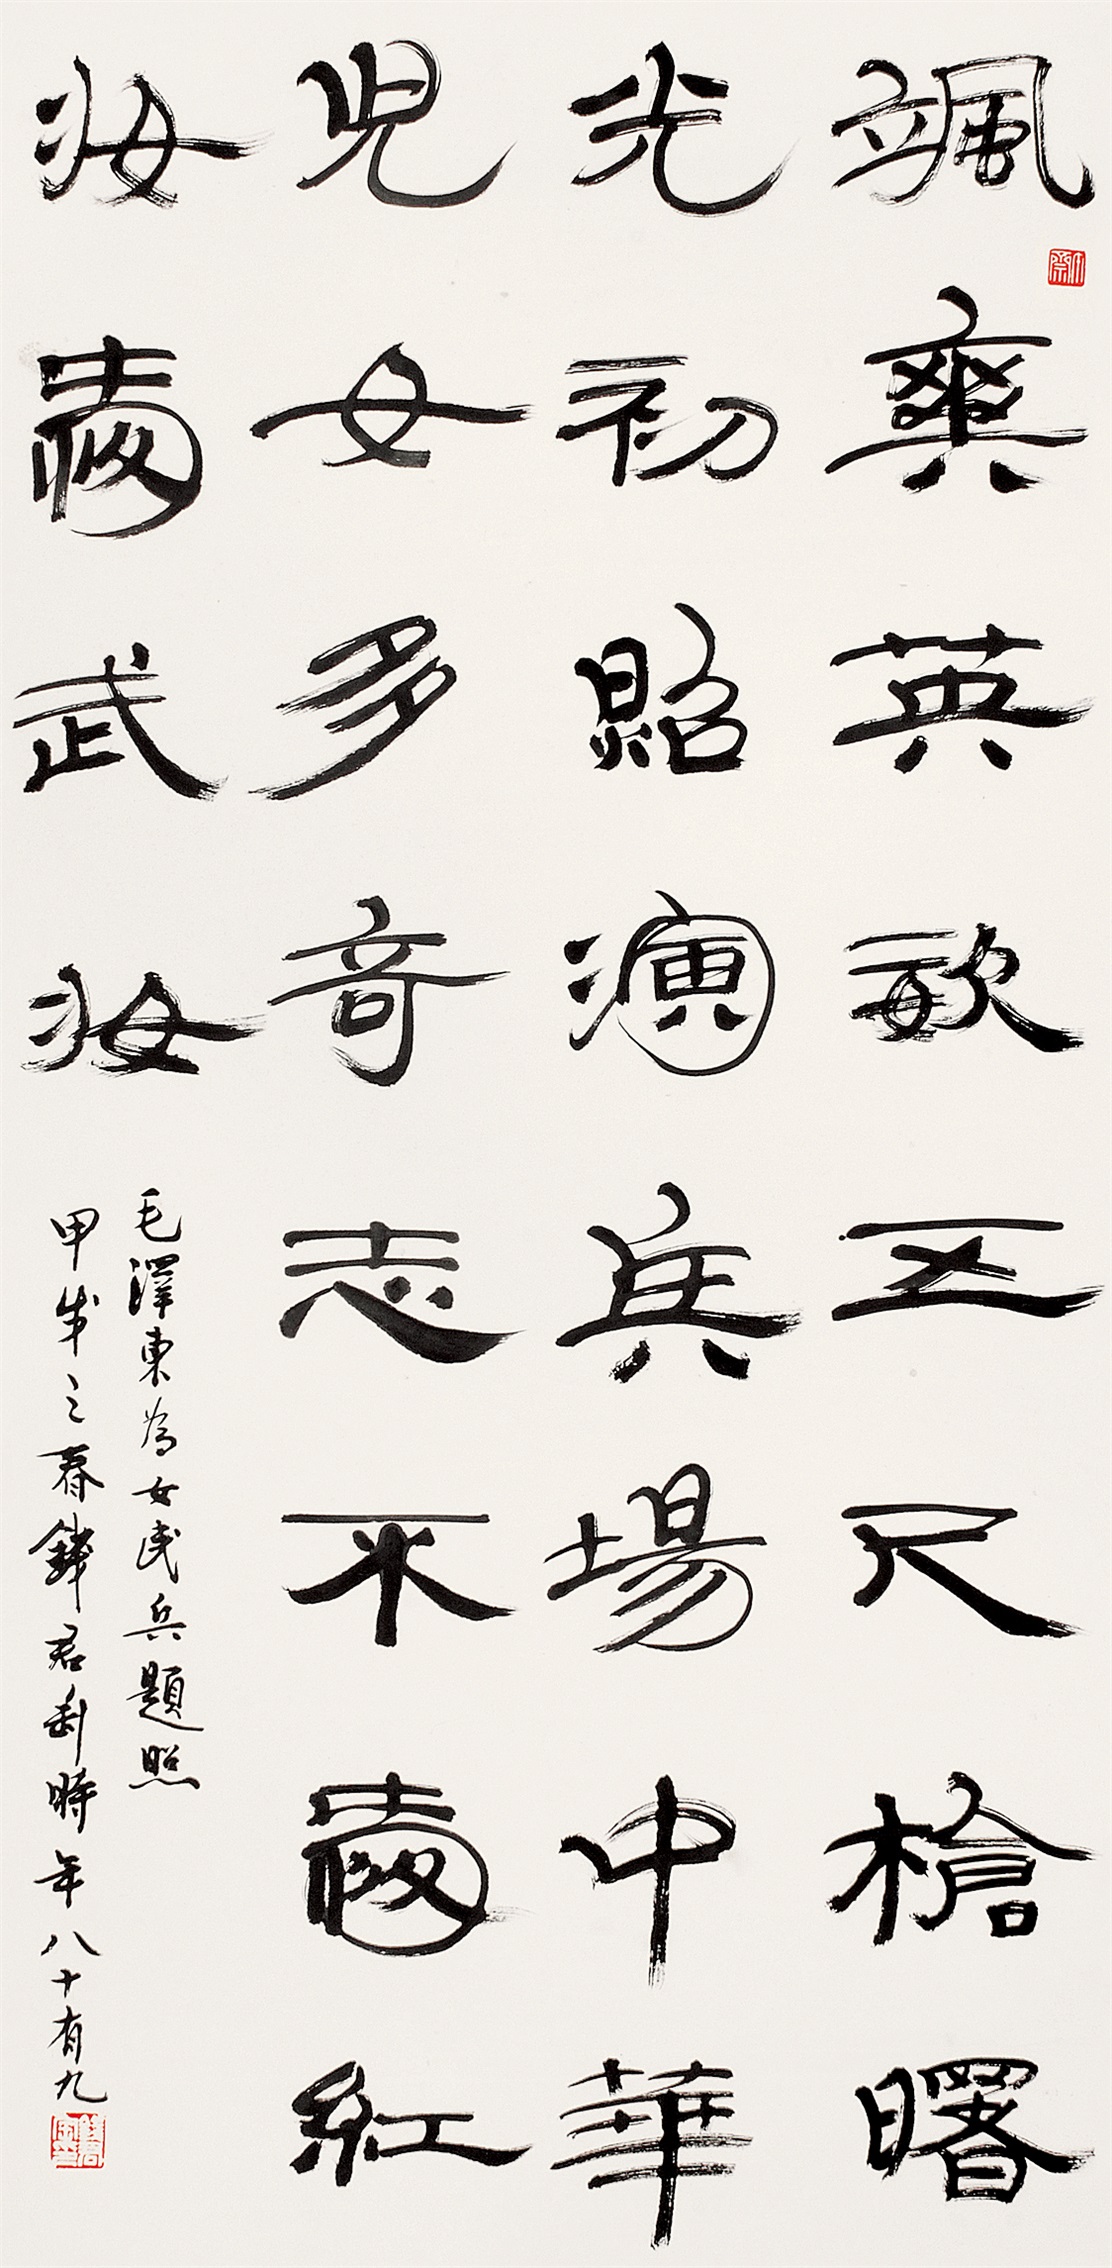 颯爽英姿五尺槍曙
光初照演兵場中華
兒女多奇志不愛紅
妝愛武妝
毛澤東為女民兵題照
甲戌之春錢君匋時年八十有九